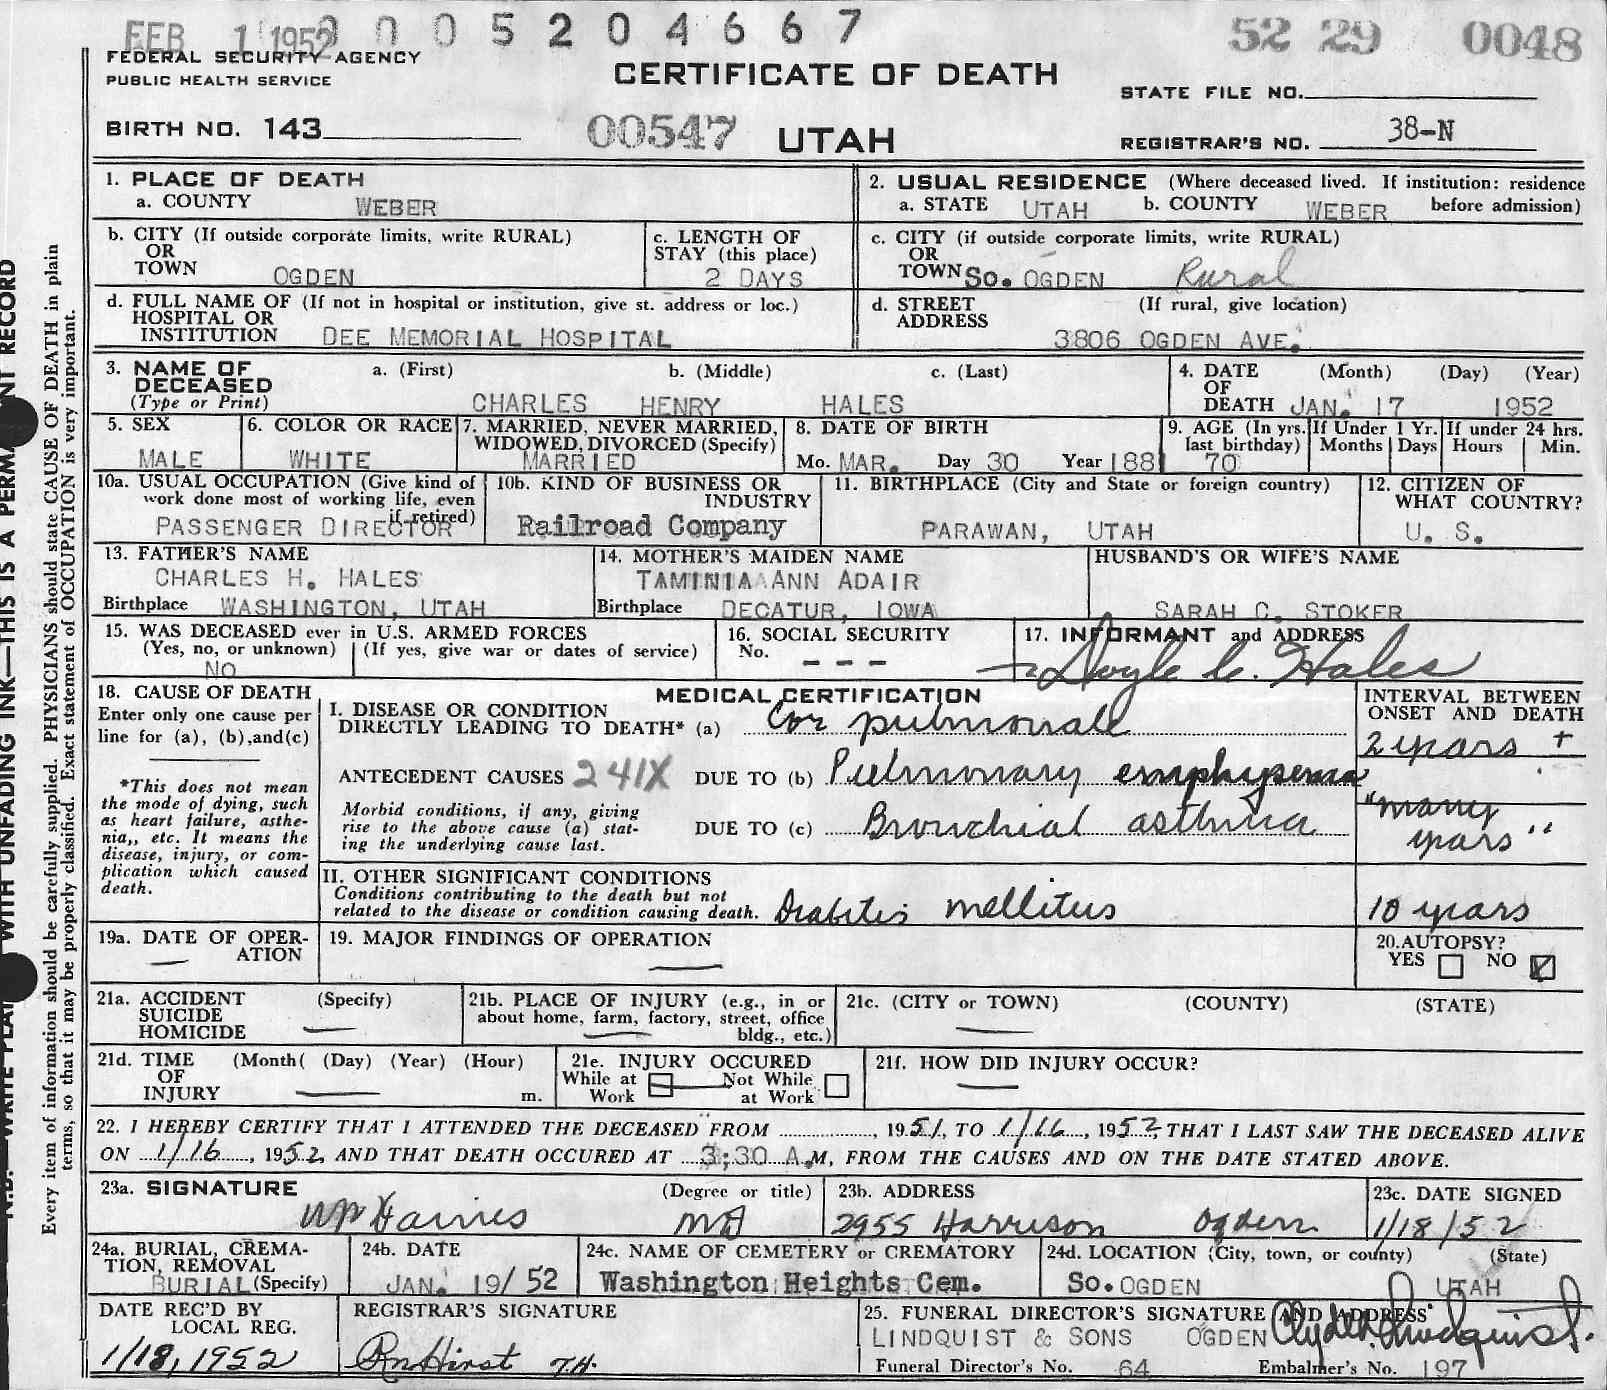 FEB 1 1952 0 0 5 2 0 4 6 6 7 52 29 0048
FEDERAL SECURITY AGENCY
PUBLIC HEALTH SERVICE
CERTIFICATE OF DEATH
STATE FILE NO.
BIRTH NO. 143 00547 UTAH REGISTRAR'S NO. 38-N
1. PLACE OF DEATH
a. COUNTY WEBER
2. USUAL RESIDENCE (Where deceased lived. If institution: residence before admission)
a. STATE UTAH b. COUNTY WEBER
b. CITY (If outside corporate limits, write RURAL)
OR
TOWN OGDEN
c. LENGTH OF
STAY (this place)
2 DAYS
c. CITY (if outside corporate limits, write RURAL)
OR
TOWN So. OGDEN Rural
d. FULL NAME OF (If not in hospital or institution, give st. address or loc.)
HOSPITAL OR
INSTITUTION DEE MEMORIAL HOSPITAL
d. STREET (If rural, give location)
ADDRESS
3806 OGDEN AVE.
3. NAME OF a. (First) b. (Middle) c. (Last)
DECEASED
(Type or Print) CHARLES HENRY HALES
4. DATE (Month) (Day) (Year)
OF
DEATH JAN. 17 1952
5. SEX
MALE
6. COLOR OR RACE
WHITE
7. MARRIED, NEVER MARRIED,
WIDOWED, DIVORCED (Specify)
MARRIED
8. DATE OF BIRTH
Mo. MAR. Day 30 Year 1881
9. AGE (In yrs. last birthday)
70
If Under 1 Yr.
Months Days
If under 24 hrs.
Hours Min.
10a. USUAL OCCUPATION (Give kind of
work done most of working life, even
if retired)
PASSENGER DIRECTOR
10b. KIND OF BUSINESS OR
INDUSTRY
Railroad Company
11. BIRTHPLACE (City and State or foreign country)
PARAWAN, UTAH
12. CITIZEN OF
WHAT COUNTRY?
U. S.
13. FATHER'S NAME
CHARLES H. HALES
Birthplace WASHINGTON, UTAH
14. MOTHER'S MAIDEN NAME
TAMINIA ANN ADAIR
Birthplace DECATUR, IOWA
HUSBAND'S OR WIFE'S NAME
SARAH C. STOKER
15. WAS DECEASED ever in U.S. ARMED FORCES
(Yes, no, or unknown) (If yes, give war or dates of service)
NO
16. SOCIAL SECURITY
No. - - -
17. INFORMANT and ADDRESS
Doyle C. Hales
18. CAUSE OF DEATH
Enter only one cause per
line for (a), (b), and (c)
*This does not mean
the mode of dying, such
as heart failure, asthe-
nia,, etc. It means the
disease, injury, or com-
plication which caused
death.
MEDICAL CERTIFICATION
I. DISEASE OR CONDITION
DIRECTLY LEADING TO DEATH* (a) Cor pulmonale
ANTECEDENT CAUSES 241X DUE TO (b) Pulmonary emphysema
Morbid conditions, if any, giving
rise to the above cause (a) stat-
ing the underlying cause last.
DUE TO (c) Bronchial asthma
INTERVAL BETWEEN
ONSET AND DEATH
2 years +
"many
years"
II. OTHER SIGNIFICANT CONDITIONS
Conditions contributing to the death but not
related to the disease or condition causing death. Diabetis mellitus
10 years
19a. DATE OF OPER-
ATION
19. MAJOR FINDINGS OF OPERATION
20. AUTOPSY?
YES NO
21a. ACCIDENT (Specify)
SUICIDE
HOMICIDE
21b. PLACE OF INJURY (e.g., in or
about home, farm, factory, street, office
bldg., etc.)
21c. (CITY or TOWN) (COUNTY) (STATE)
21d. TIME (Month( (Day) (Year) (Hour)
OF
INJURY m.
21e. INJURY OCCURED
While at Work Not While at Work
21f. HOW DID INJURY OCCUR?
22. I HEREBY CERTIFY THAT I ATTENDED THE DECEASED FROM , 1951, TO 1/16, 1952, THAT I LAST SAW THE DECEASED ALIVE
ON 1/16, 1952, AND THAT DEATH OCCURED AT 3:30 A.M, FROM THE CAUSES AND ON THE DATE STATED ABOVE.
23a. SIGNATURE (Degree or title)
WP Haines MD
23b. ADDRESS
2955 Harrison Ogden
23c. DATE SIGNED
1/18/52
24a. BURIAL, CREMA-
TION, REMOVAL
BURIAL (Specify)
24b. DATE
JAN. 19/52
24c. NAME OF CEMETERY or CREMATORY
Washington Heights Cem.
24d. LOCATION (City, town, or county) (State)
So. OGDEN UTAH
DATE REC'D BY
LOCAL REG.
1/18, 1952
REGISTRAR'S SIGNATURE
25. FUNERAL DIRECTOR'S SIGNATURE AND ADDRESS
LINDQUIST & SONS OGDEN
Funeral Director's No. 64 Embalmer's No. 197
N.B. WITH UNFADING INK—THIS IS A RECORD
Every item of information should be carefully supplied. PHYSICIANS should state CAUSE OF DEATH in plain
terms, so that it may be properly classified. Exact statement of OCCUPATION is very important.